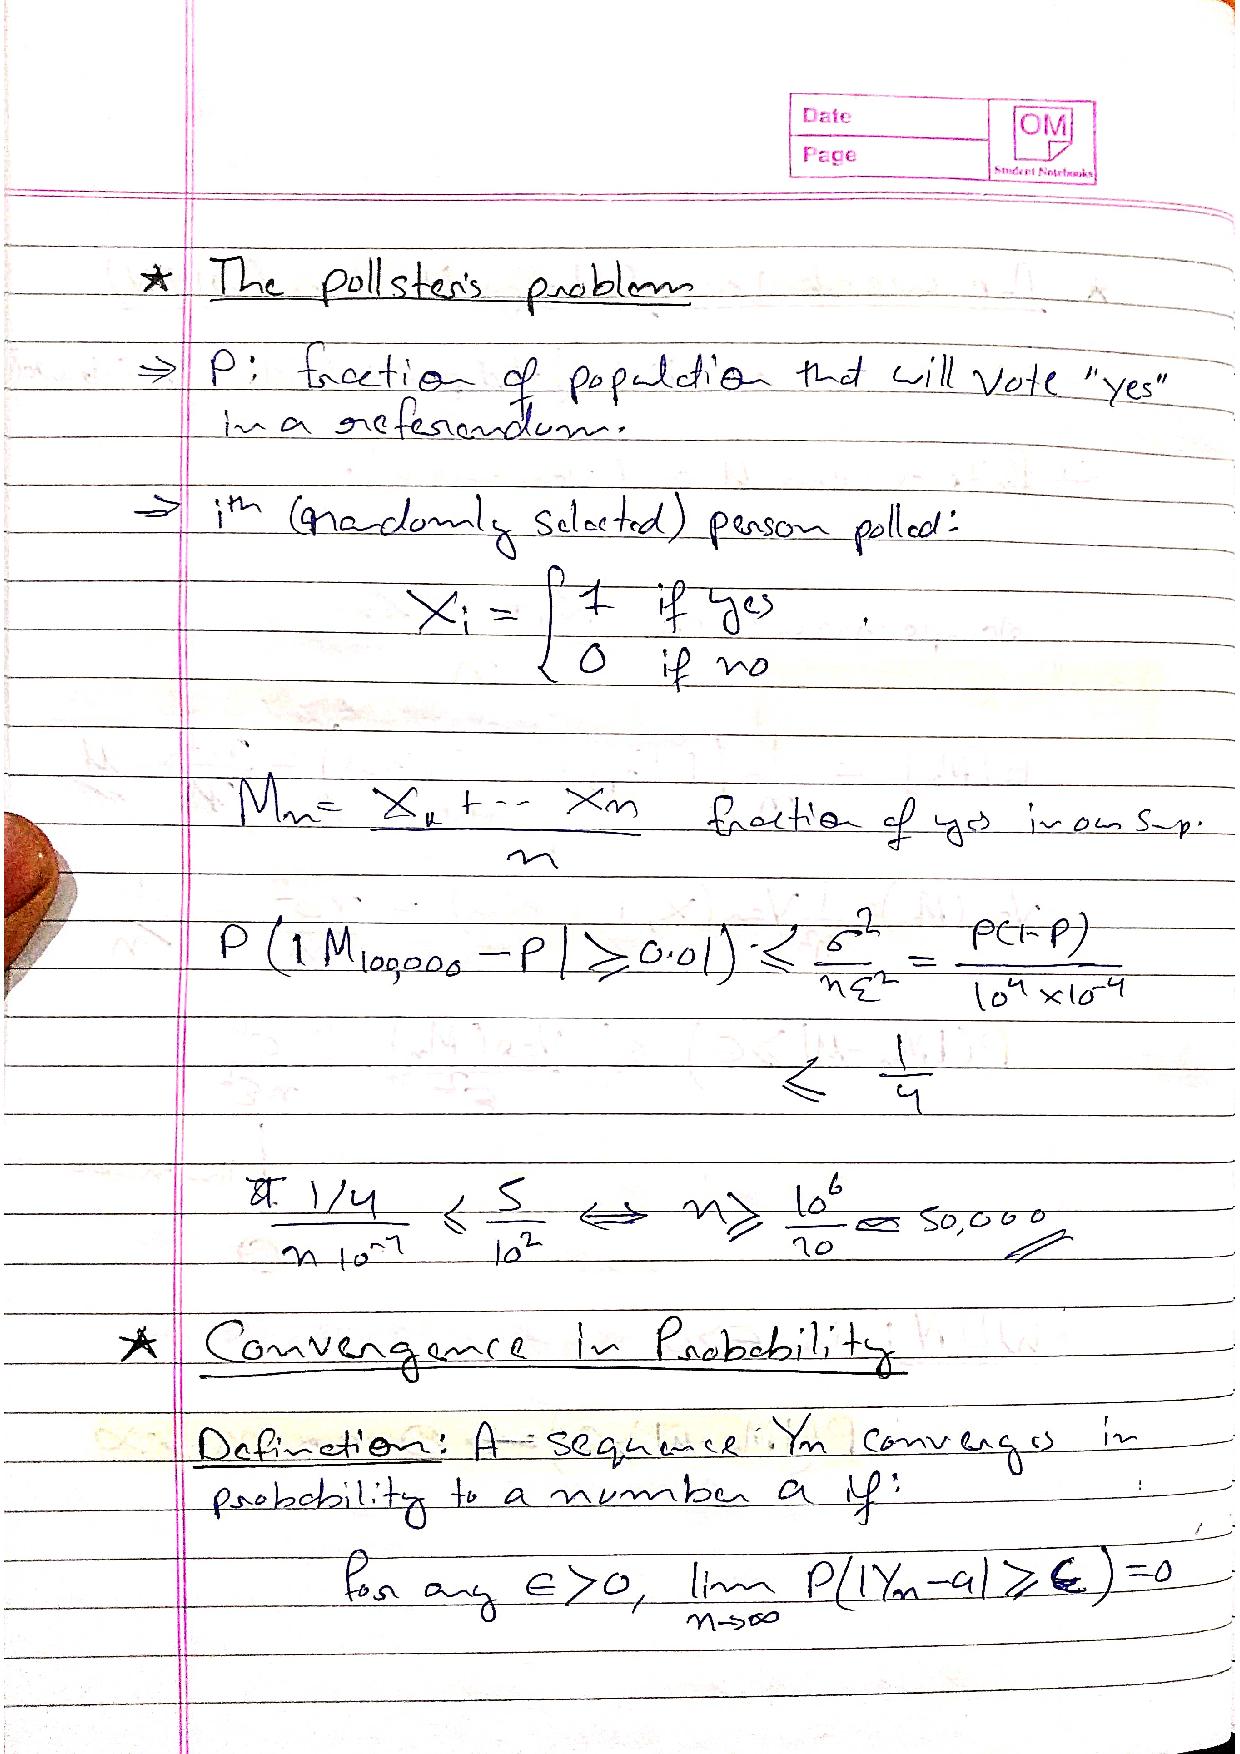 Date
Page
OM
Student Notebooks
★ The pollster's problem
⇒ P: fraction of population that will vote "yes"
in a referendum.
⇒ ith (randomly selected) person polled:
Xi = { 1 if yes
0 if no
Mn = X1 + -- Xn / n fraction of yes in our sap.
P(|M100,000 - P| ≥ 0.01) ≤ σ²/nε² = P(1-P)/10⁴×10⁻⁴
≤ 1/4
1/4 / n 10⁻⁴ ≤ 5/10² ⇔ n ≥ 10⁶/20 = 50,000
★ Convergence In Probability
Definition: A sequence Yn converges in
probability to a number a if:
for any ε>0, lim n→∞ P(|Yn-a| ≥ ε) = 0